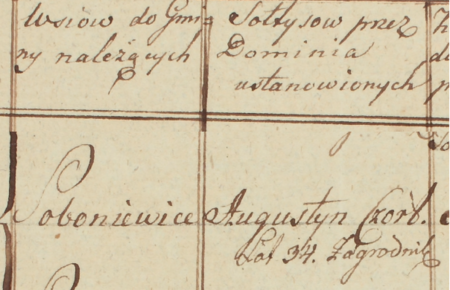 Wsiow do Gmi
ny należących
Sołtysow przez
Dominia
ustanowionych
Soboniewice
Augustyn Czorb.
Lat 34. Zagrodnik